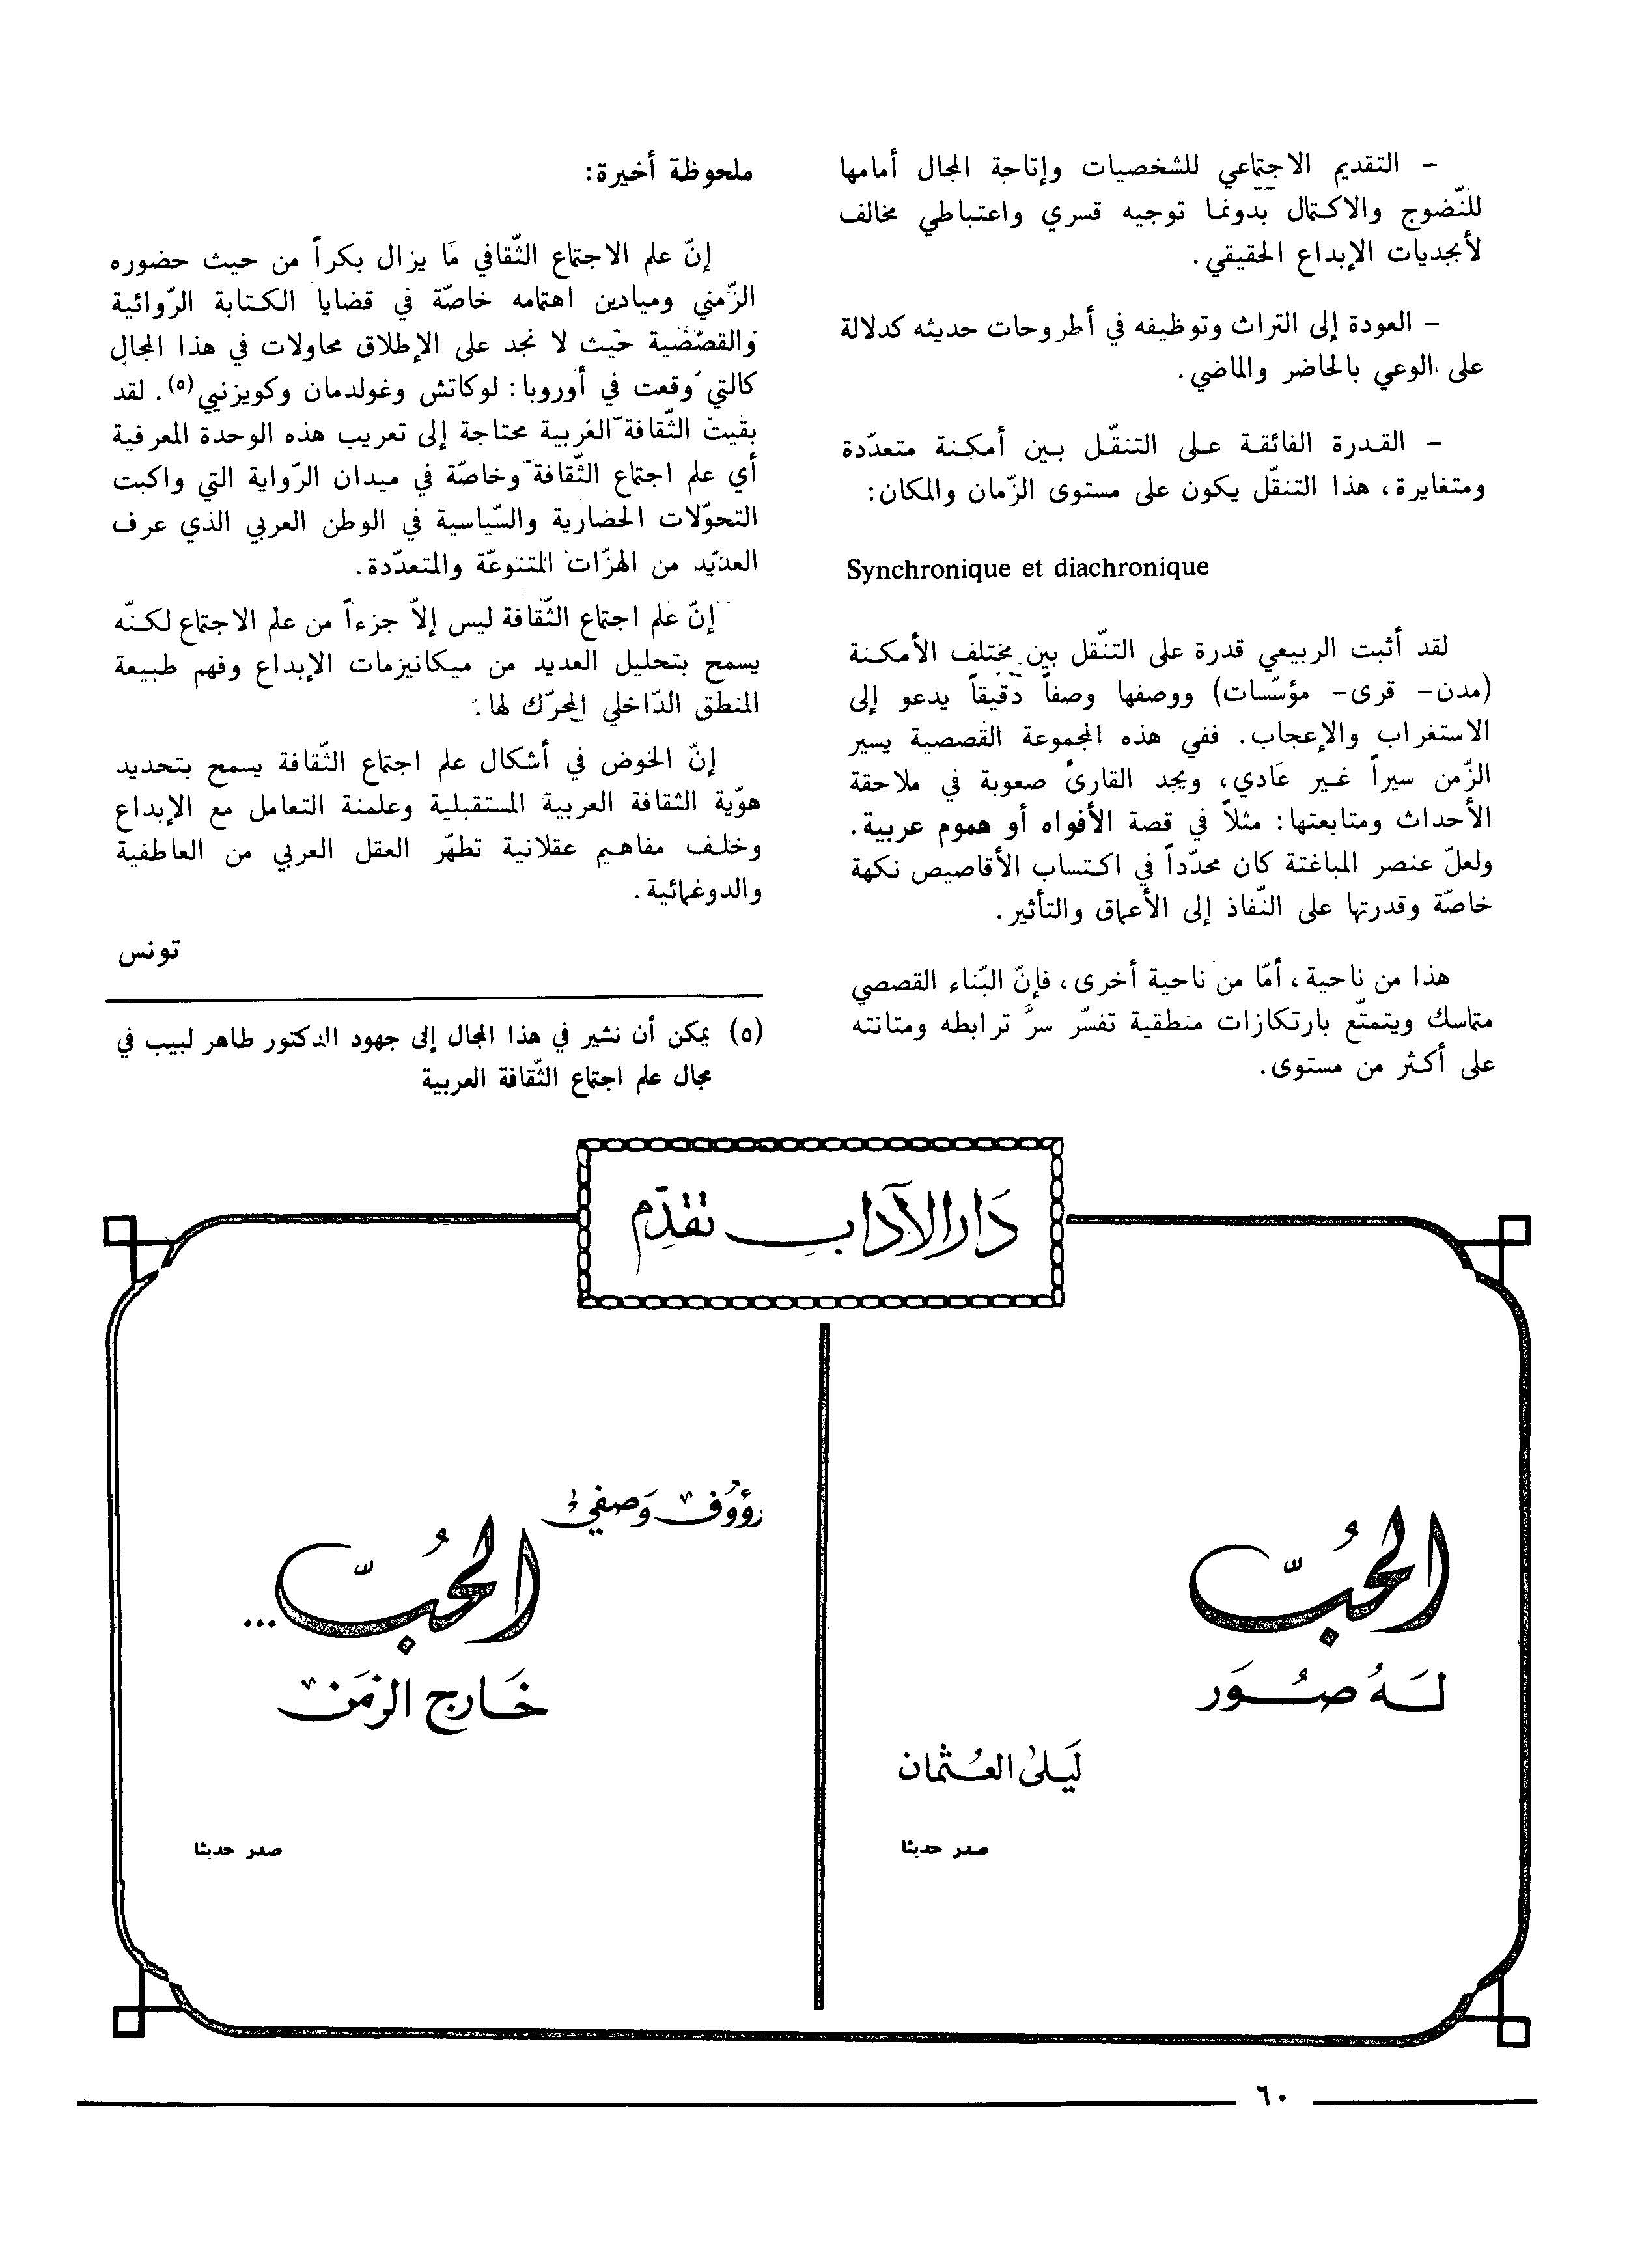 – التقديم الاجتماعي للشخصيات وإتاحة المجال أمامها
للنّضوج والاكتمال بدونما توجيه قسري واعتباطي مخالف
لأبجديات الإبداع الحقيقي.
– العودة إلى التراث وتوظيفه في أطروحات حديثه كدلالة
على الوعي بالحاضر والماضي.
– القدرة الفائقة على التنقّل بين أمكنة متعدّدة
ومتغايرة، هذا التنقّل يكون على مستوى الزّمان والمكان:
Synchronique et diachronique
لقد أثبت الربيعي قدرة على التنّقل بين مختلف الأمكنة
(مدن- قرى- مؤسّسات) ووصفها وصفاً دقيقاً يدعو إلى
الاستغراب والإعجاب. ففي هذه المجموعة القصصية يسير
الزّمن سيراً غير عَادي، ويجد القارئ صعوبة في ملاحقة
الأحداث ومتابعتها: مثلاً في قصة الأفواه أو هموم عربية.
ولعلّ عنصر المباغتة كان محدّداً في اكتساب الأقاصيص نكهة
خاصّة وقدرتها على النّفاذ إلى الأعماق والتأثير.
هذا من ناحية، أمّا من ناحية أخرى، فإنّ البّناء القصصي
متماسك ويتمتّع بارتكازات منطقية تفسّر سرَّ ترابطه ومتانته
على أكثر من مستوى.
ملحوظة أخيرة:
إنّ علم الاجتماع الثّقافي مَا يزال بكراً من حيث حضوره
الزّمني وميادين اهتمامه خاصّة في قضايا الكتابة الرّوائية
والقصّصية حيث لا نجد على الإطلاق محاولات في هذا المجال
كالتي وقعت في أوروبا: لوكاتش وغولدمان وكويزنيي(٥). لقد
بقيت الثّقافة العربية محتاجة إلى تعريب هذه الوحدة المعرفية
أي علم اجتماع الثّقافة وخاصّة في ميدان الرّواية التي واكبت
التحوّلات الحضارية والسّياسية في الوطن العربي الذي عرف
العديد من الهزّات المتنوعّة والمتعدّدة.
إنّ علم اجتماع الثّقافة ليس إلاّ جزءاً من علم الاجتماع لكنّه
يسمح بتحليل العديد من ميكانيزمات الإبداع وفهم طبيعة
المنطق الدّاخلي المحرّك لها.
إنّ الخوض في أشكال علم اجتماع الثّقافة يسمح بتحديد
هوّية الثقافة العربية المستقبلية وعلمنة التعامل مع الإبداع
وخلف مفاهيم عقلانية تطهّر العقل العربي من العاطفية
والدوغمائية.
تونس
(٥) يمكن أن نشير في هذا المجال إلى جهود الدكتور طاهر لبيب في
مجال علم اجتماع الثّقافة العربية
دَار الآدابِ تقدِّم
الحُبّ
لَهُ صُوَر
لَيلى العُثمان
صدر حديثا
رؤُوف وَصفي
الحُبّ...
خَارج الزمَن
صدر حديثا
٦٠